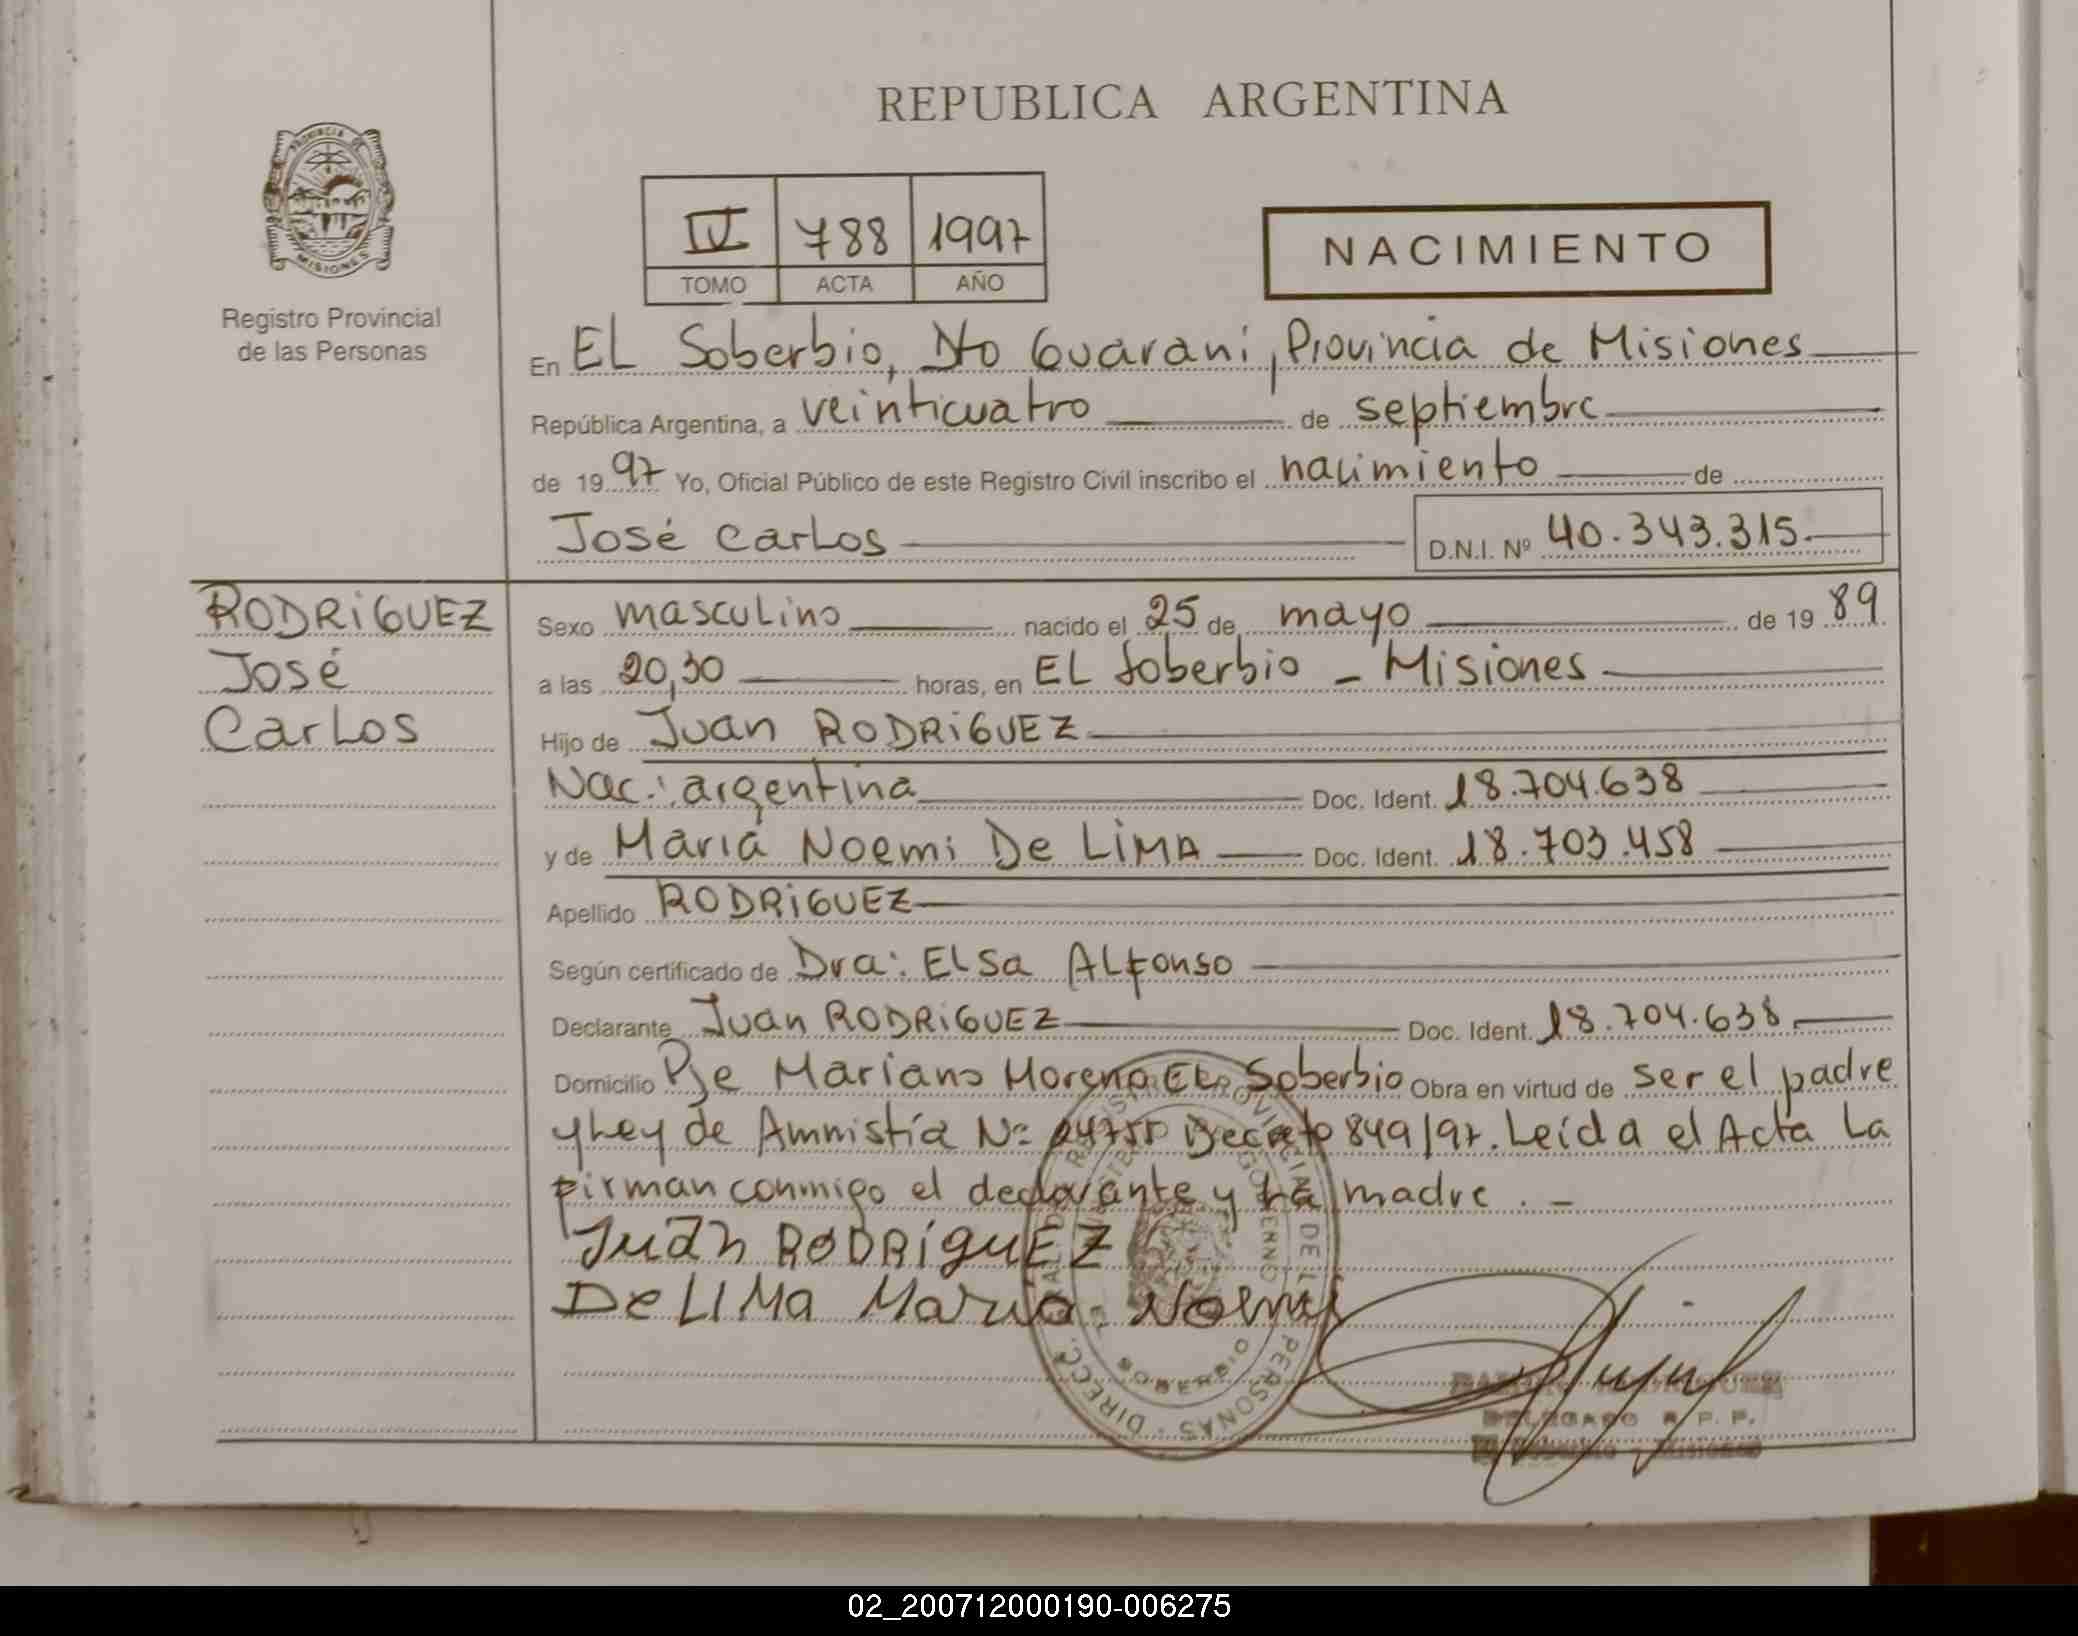 REPUBLICA ARGENTINA
PROVINCIA DE
MISIONES
Registro Provincial
de las Personas
IV 788 1997
TOMO ACTA AÑO
NACIMIENTO
En EL Soberbio, Dto Guarani, Provincia de Misiones
República Argentina, a veinticuatro de septiembre
de 1997 Yo, Oficial Público de este Registro Civil inscribo el nacimiento de
José Carlos D.N.I. Nº 40.343.315.
RODRiGUEZ
José
Carlos
Sexo masculino nacido el 25 de mayo de 1989
a las 20,30 horas, en EL Soberbio - Misiones
Hijo de Juan RODRiGUEZ
Nac.: argentina Doc. Ident. 18.704.638
y de Maria Noemi De LiMA Doc. Ident. 18.703.458
Apellido RODRiGUEZ
Según certificado de Dra: ELSa ALfonso
Declarante Juan RODRiGUEZ Doc. Ident. 18.704.638
Domicilio Pje Mariano Moreno EL Soberbio Obra en virtud de ser el padre
y Ley de Amnistía Nº 24755 Decreto 849/97. Leída el Acta La
firman conmigo el declarante y La madre . -
Juan RODRíguEZ
De LIMa Maria Noemi
DIRECC. PROVINCIAL DEL
PERSONAS
GOBIERNO
SOBERBIO
DELEGADO R. P. P.
El Soberbio - Misiones
02_200712000190-006275